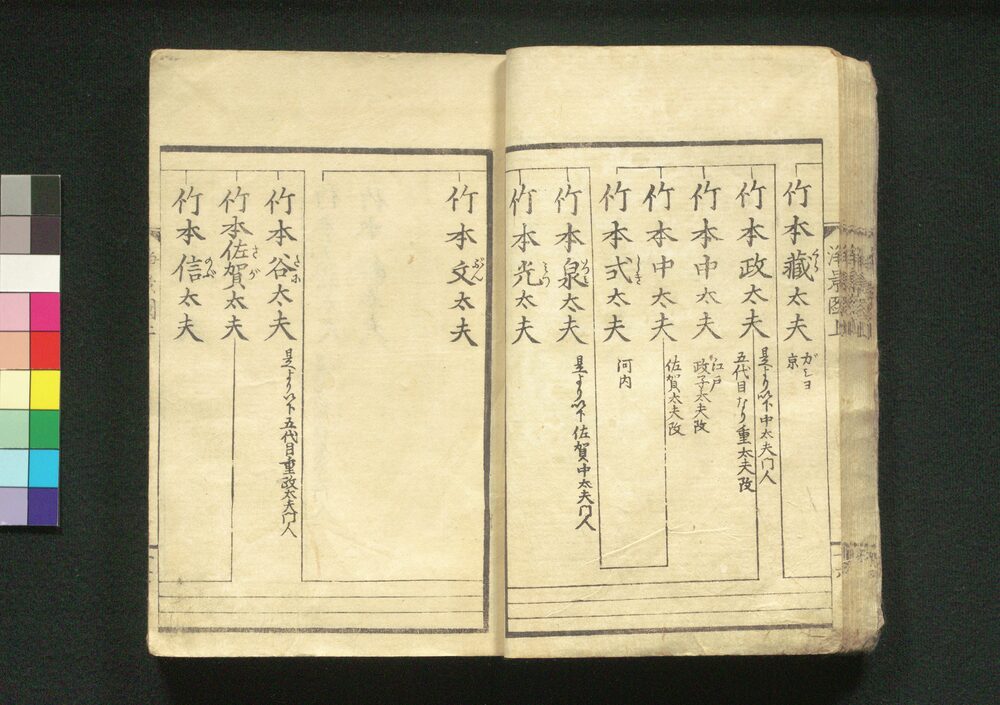 竹本藏太夫
ガミヨ
京
竹本政太夫
是より以下中太夫門人
五代目なり重太夫改
竹本中太夫
江戸
政子太夫改
竹本中太夫
佐賀太夫改
竹本式太夫
しき
河内
竹本泉太夫
是より以下佐賀中太夫門人
竹本光太夫
みつ
竹本文太夫
ぶん
竹本谷太夫
たに
是より以下五代目重政太夫門人
竹本佐賀太夫
さが
竹本信太夫
のぶ